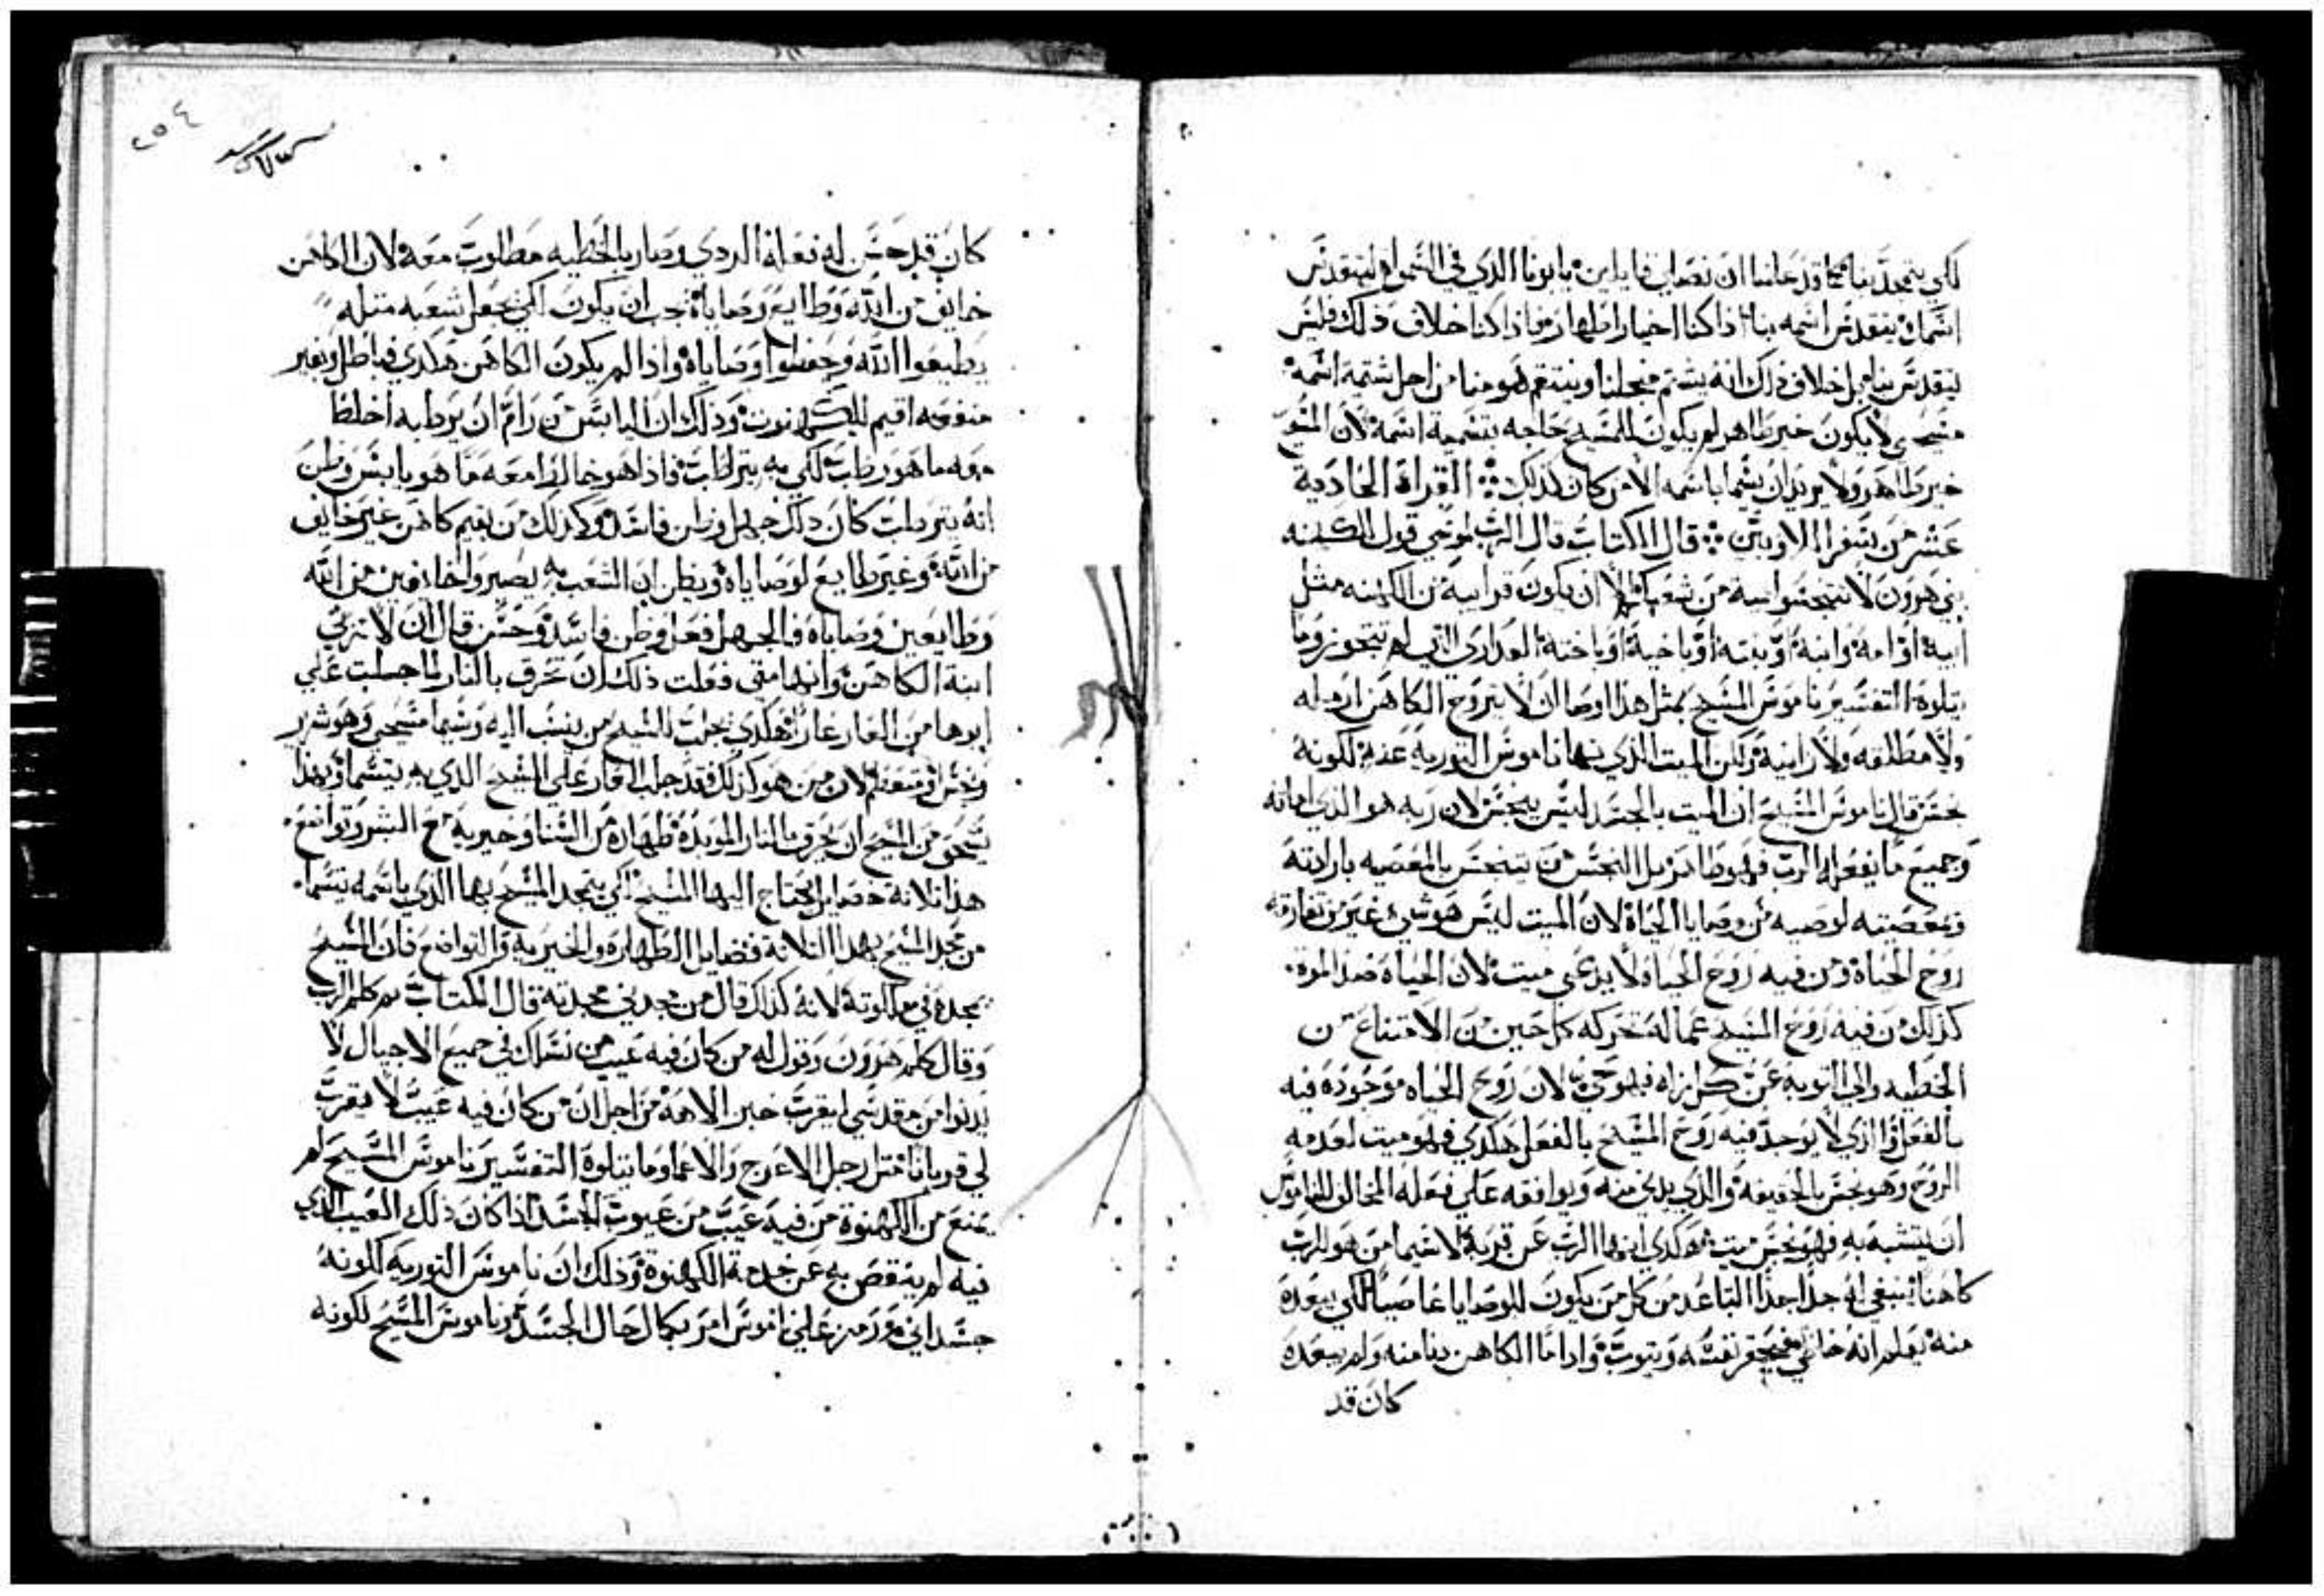 لكي يتمجد بنا كما قد علمنا ان نصلي قايلين يا ابونا الذي في السموات ليتقدس
اسمك يتقدس اسمه بنا اذا كنا اخيار اطهار فاذا كنا خلاف ذلك فليس
ليقدس بنا بل خلاف ذلك انه يشتم من اجلنا وينتقم هو منا من اجل شتمة اسمه
مسيحي لا يكون خير طاهر لم يكون للمسيح حاجه بتسمية اسمه لان
خير طاهر ولا يريد ان يتسما باسمه الا من كان كذلك القراة الحادية
عشر من سفر الاويين قال الكتاب قال الرب لموسي قول للكهنه
بني هرون لا تتنجسوا بميت من شعبكم الا ان يكون قرابية من الكهنه مثل
ابيه او امه وابنه او بنته او باخيه او باخته العداري التي لم تتجوز وما
يتلوه التفسير ناموس المسيح بمثل هذا اوصا ان لا يتزوج الكاهن ارمله
ولا مطلقه ولا زانيه ولكن الميت الذي نها ناموس التوريه عنه لكونه
نجس قال ناموس المسيح ان الميت بالجسد ليس ينجس لان ربه هو الذي اماته
وجميع ما يفعله الرب فهو طاهر بل النجس من يتنجس بالمعصيه بارادته
وبمعصيته لوصيه من وصايا الحياة لان الميت ليس هو شي غير من تفارقه
روح الحياة ومن فيه روح الحياة لا يدعي ميت لان الحياة ضد الموت
كذلك من فيه روح المسيح عماله تحركه كل حين من الامتناع من
الخطيه والي التوبه عن كل زله فهو حي لان روح الحياه موجوده فيه
بالفعل والذي لا يوجد فيه روح المسيح بالفعل هكدي فهو ميت لعدمه
الروح وهو نجس بالحقيقه والذي يدني منه ويوافقه علي فعله المخالف للناموس
ان يتشبه به فهو نجس ميت هكدي انها الرب عن قربه لا سيما من هو للرب
كاهنا ينبغي له جدا جدا التباعد من كل من يكون للوصايا عاصيا لكي ببعده
منه يعلم انه خاطي فيحقر نفسه ويتوب واداما الكاهن دنا منه ولم يبعده
كان قد
كان قد حسن له فعله الردي وصار بالخطيه مطلوب معه لان الكاهن
خايف من الله وطايع وصاياه يجب ان يكون لكي يجعل شعبه مثله
يطيعوا الله ويحفظوا وصاياه واذا لم يكون الكاهن هكدي فباطل وبغير
منفعه اقيم للكهنوت وذلك ان اليابس من رام ان يرطبه اخلط
معه ما هو رطب لكي به يترطب فاذا هو خالط معه ما هو يابس وظن
انه يترطب كان ذلك جهل وظن فاسد وكذلك من يقيم كاهن غير خايف
من الله وغير طايع لوصاياه ويظن ان الشعب به يصيروا خايفين من الله
وطايعين وصاياه فبالجهل فعل وظن فاسد وحسن قال ان لا تزني
ابنة الكاهن وانها متي فعلت ذلك ان تحرق بالنار لما جلبت علي
ابوها من العار عار هكدي يجلب للمسيح من ينسب اليه ويسما مسيحي وهو شرير
ونجس ومتعظم لان من هو كذلك فقد جلب العار علي المسيح الذي به يتسما وبهذا
يستحق من المسيح ان يحرق بالنار الموبده طهارة من الزنا وخيريه مع البشر وتواضع
هذا ثلاثة خصايل يحتاج اليها المسيح لكي يتمجد المسيح بها الذي باسمه يتسما
من مجد المسيح بهذا الثلاثة فضايل الطهاره والخيريه والتواضع فان المسيح
يمجده في ملكوته لانه كذلك قال من مجدني مجدته قال الكتاب ثم كلم الرب
وقال كلم هرون وقول له من كان فيه عيب من نسلك في جميع الاجيال لا
يدنوا من مقدسي ليقرب خبز الاهه من اجل ان من كان فيه عيب لا يقرب
لي قربانا مثل رجل الاعرج والاعما وما يتلوه التفسير ناموس المسيح لم
يمنع من الكهنوة من فيه عيب من عيوب الجسد اذا كان ذلك العيب الذي
فيه لم ينقص به عن خدمة الكهنوة وذلك ان ناموس التوريه لكونه
جسداني ورمز علي ناموس امر بكمال حال الجسد وناموس المسيح لكونه